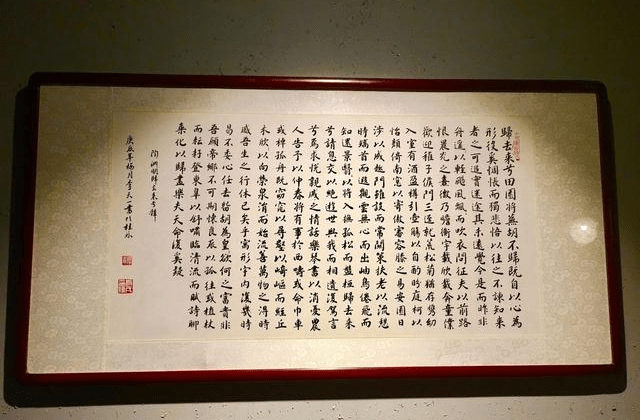 歸去來兮田園將蕪胡不歸既自以心為
形役奚惆悵而獨悲悟以往之不諫知來
者之可追實迷途其未遠覺今是而昨非
舟遙以輕颺風飄而吹衣問征夫以前路
恨晨光之熹微乃瞻衡宇載欣載奔僮僕
歡迎稚子候門三逕就荒松菊猶存攜幼
入室有酒盈樽引壺觴以自酌眄庭柯以
怡顏倚南窗以寄傲審容膝之易安園日
涉以成趣門雖設而常關策扶老以流憩
時矯首而遐觀雲無心而出岫鳥倦飛而
知還景翳以將入撫孤松而盤桓歸去來
兮請息交以絕遊世與我而相遺復駕言
兮焉求悅親戚之情話樂琴書以消憂農
人告予以仲春將有事於西疇或命巾車
或棹孤舟既窈窕以尋壑亦崎嶇而經丘
木欣以向榮泉涓而始流善萬物之得時
感吾生之行休已矣乎寓形宇內復幾時
曷不委心任去留胡為遑欲何之富貴非
吾願帝鄉不可期懷良辰以孤往或植杖
而耘耔登東皋以舒嘯臨清流而賦詩聊
乘化以歸盡樂夫天命復奚疑
陶淵明歸去來兮辭
庚辰年